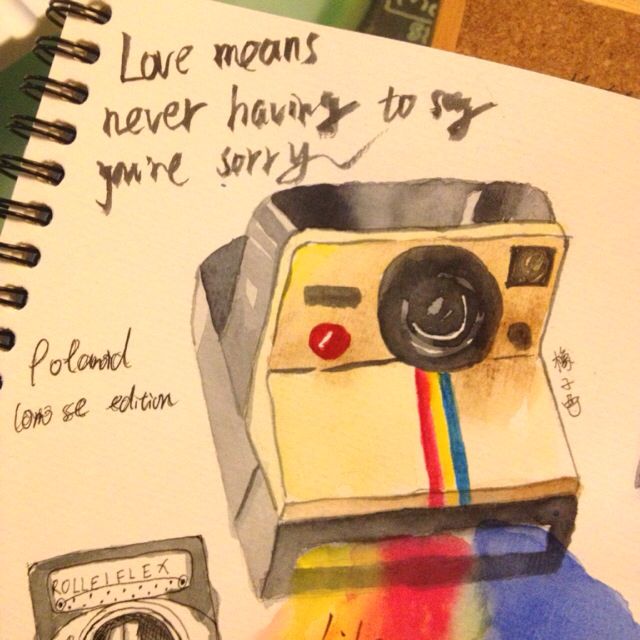 Love means
never having to say
you're sorry
Polaroid
edition
ROLLEIFLEX